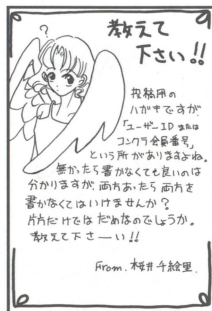 ?
教えて
下さい!!
投稿用の
ハガキですが
「ユーザーID または
コンクラ会員番号」
という所がありますよね。
無かったら書かなくても良いのは
分かりますが、両方あったら両方を
書かなくてはいけませんか?
片方だけではだめなのでしょうか。
教えて下さーい!!
From. 桜井千絵里.